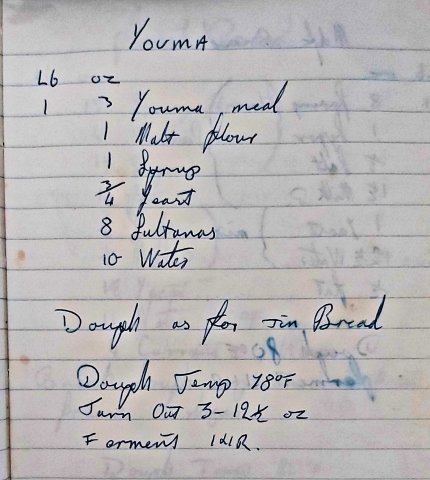 YOUMA
Lb oz
1 3 Youma meal
1 Malt flour
1 Syrup
3/4 Yeast
8 Sultanas
10 Water
Dough as for Tin Bread
Dough Temp 78°F
Turn Out 3-12½ oz
Ferment HR.